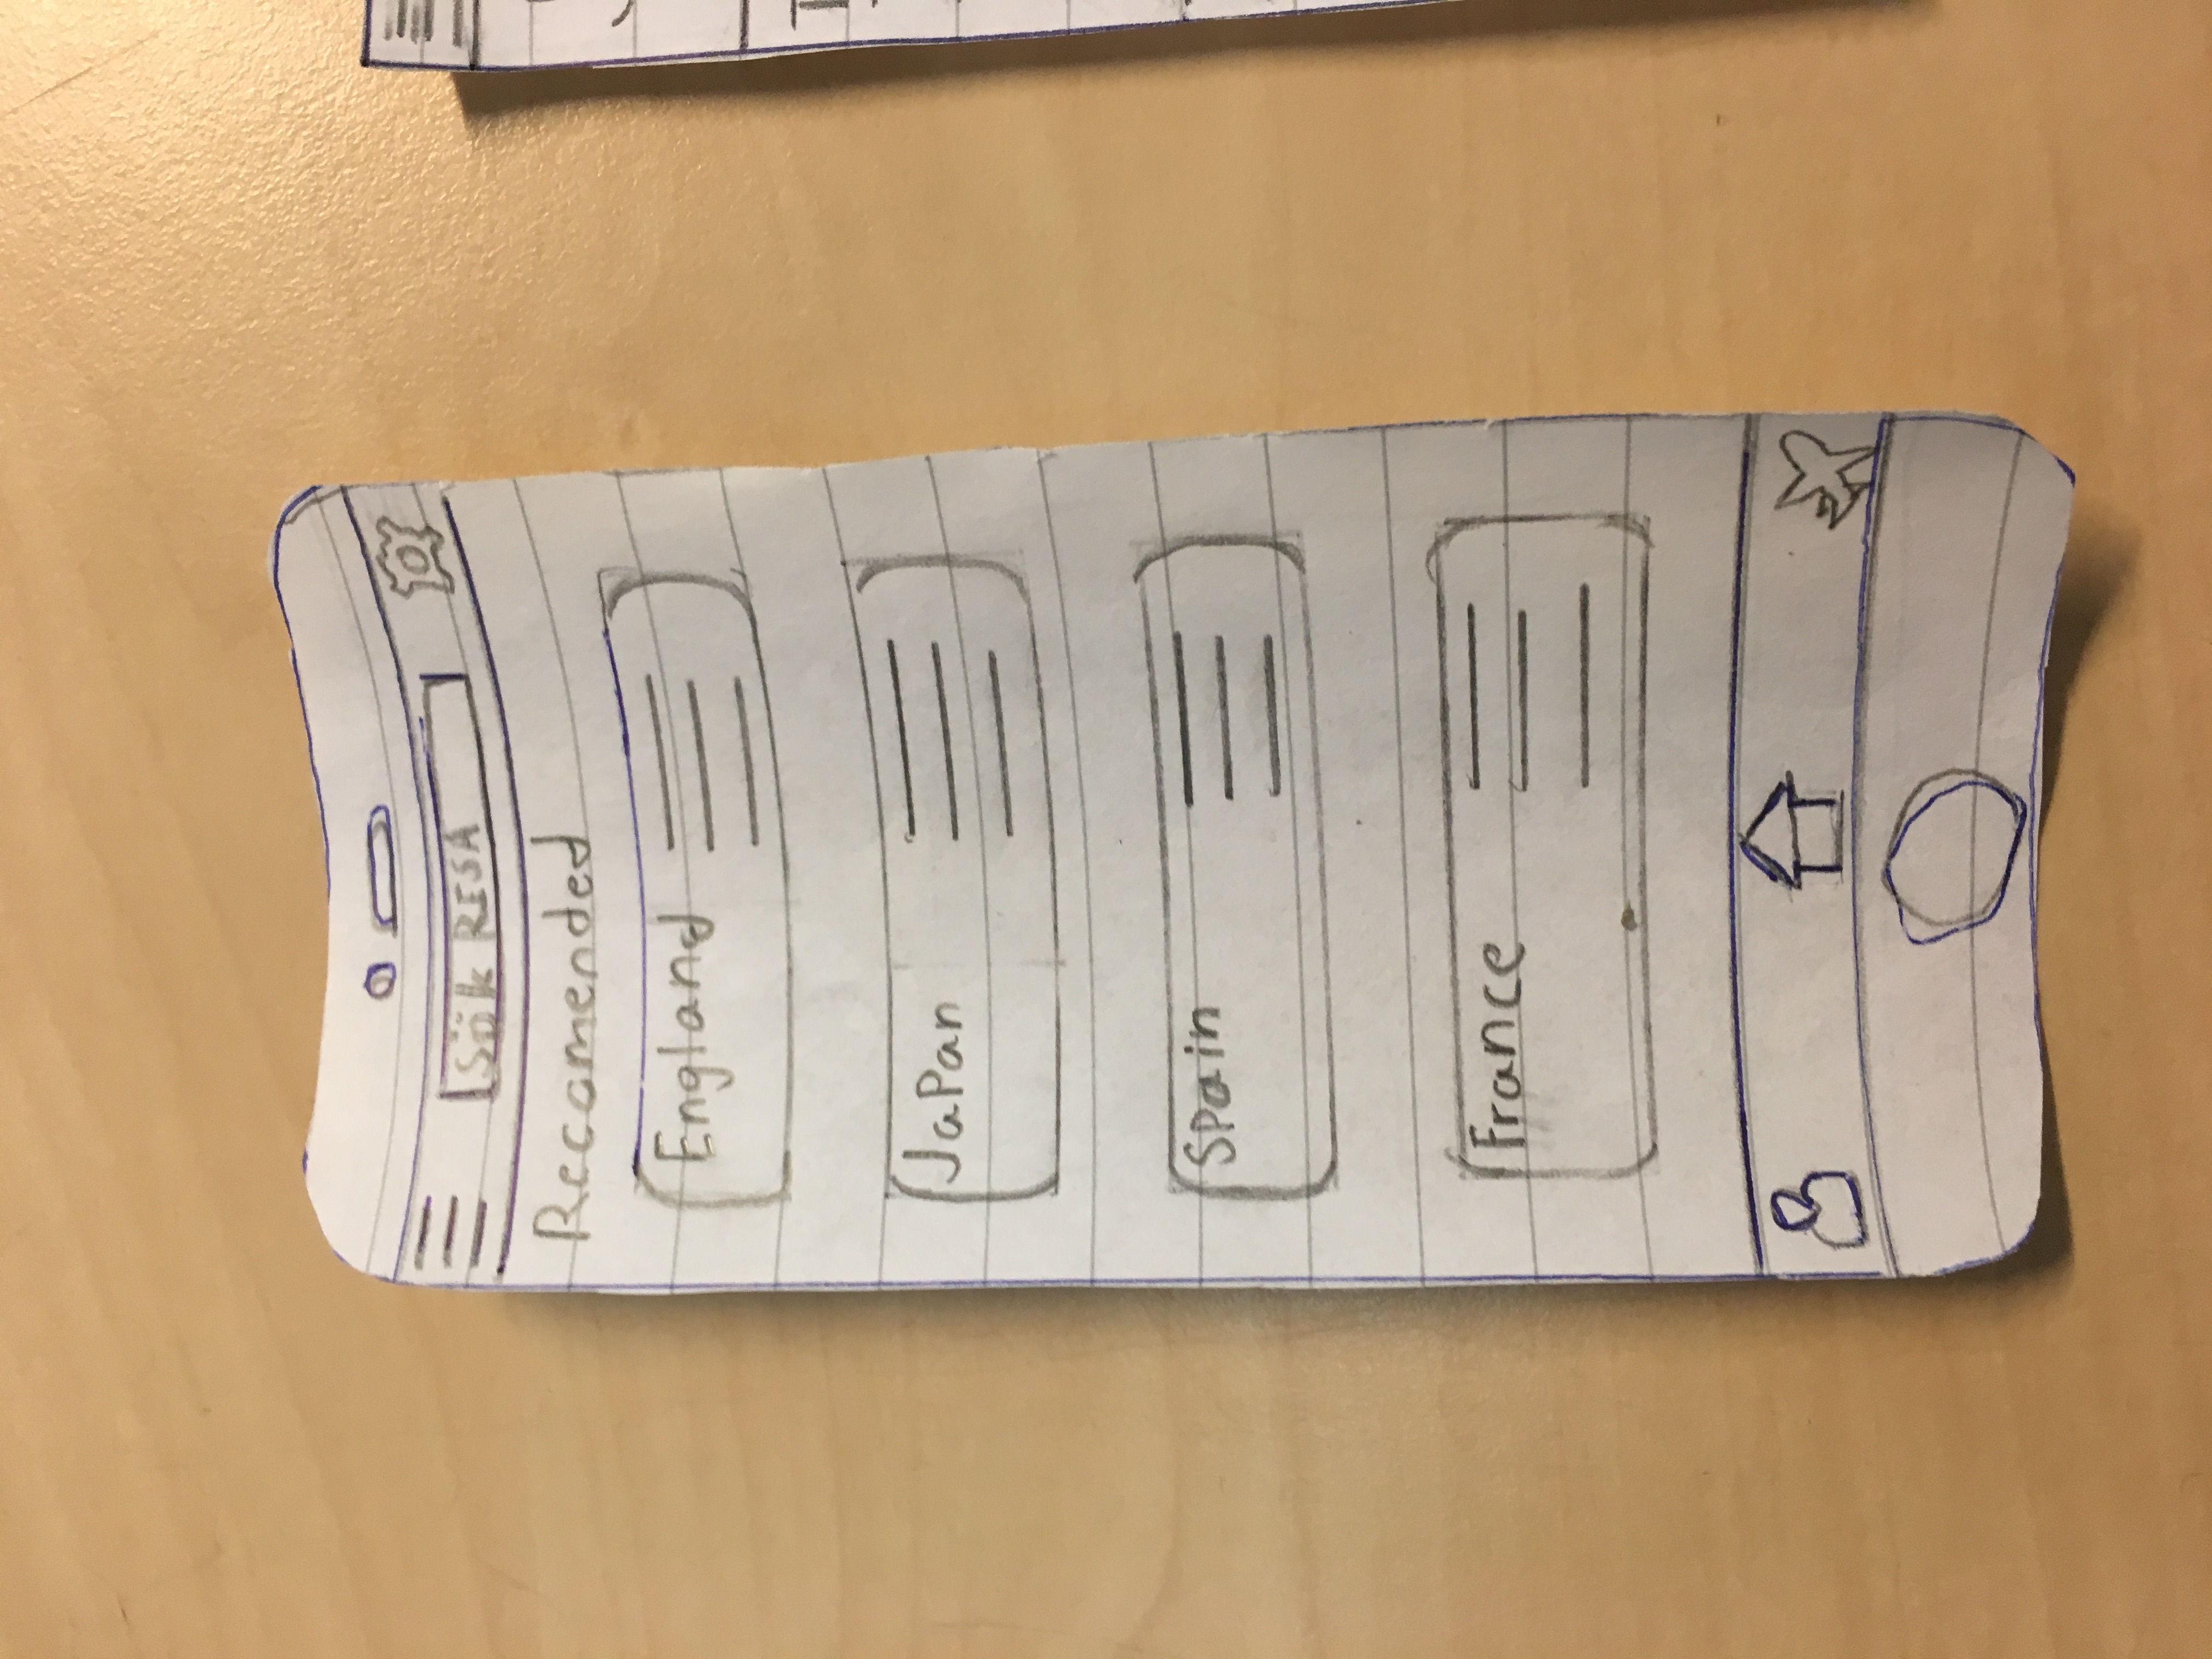 Sök RESA
Recomended
England
JaPan
SPain
France